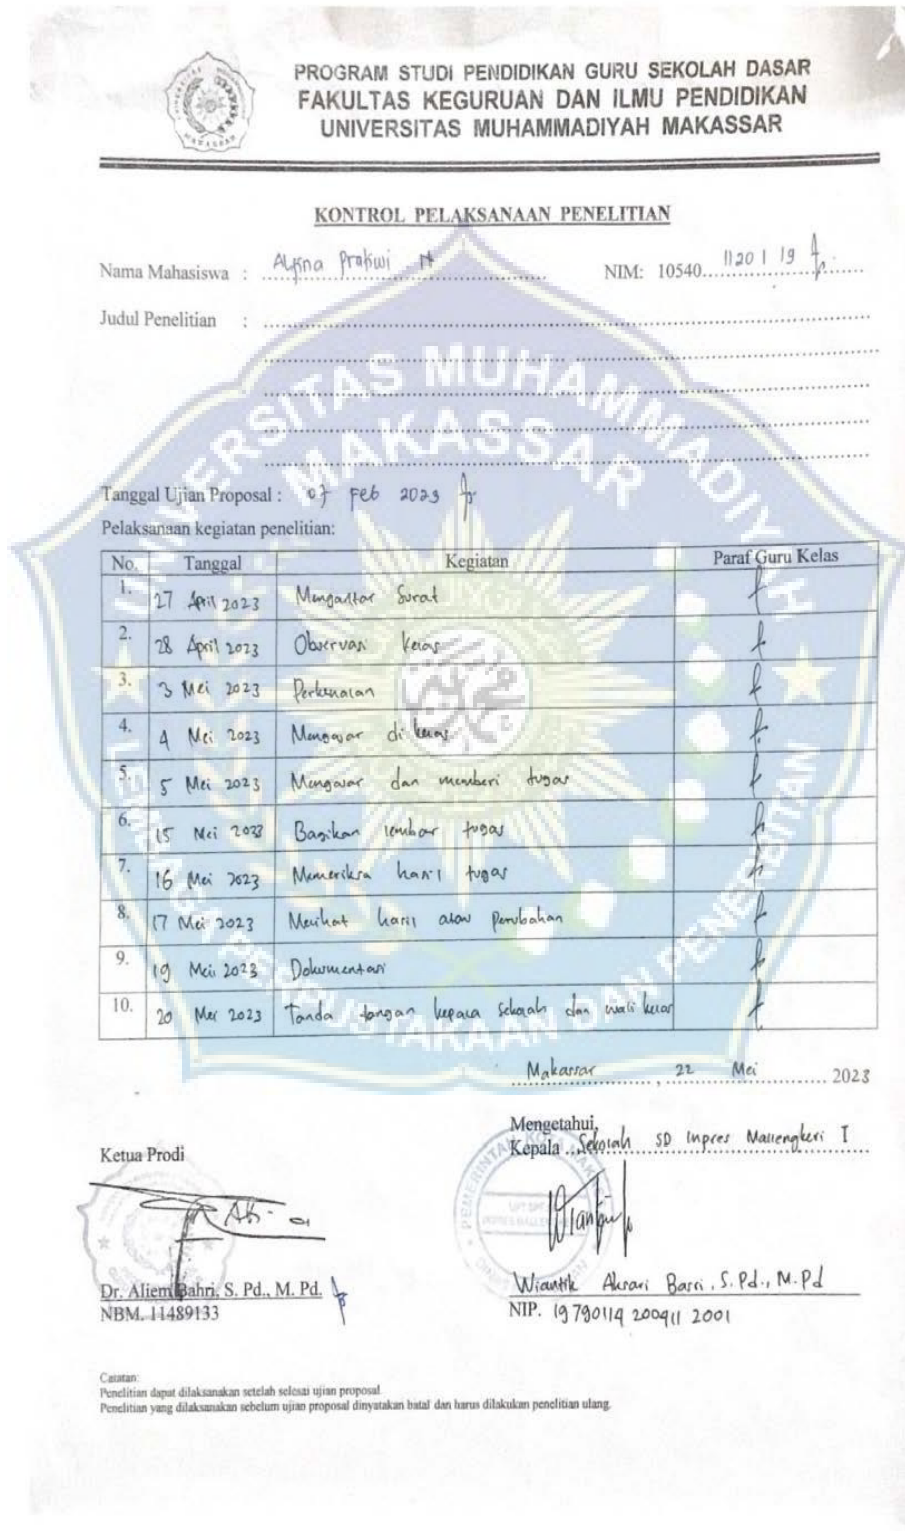 PROGRAM STUDI PENDIDIKAN GURU SEKOLAH DASAR
FAKULTAS KEGURUAN DAN ILMU PENDIDIKAN
UNIVERSITAS MUHAMMADIYAH MAKASSAR
KONTROL PELAKSANAAN PENELITIAN
Nama Mahasiswa : Pratiwi N NIM: 10540 11201 19
Judul Penelitian :
Tanggal Ujian Proposal : 07 Feb 2023
Pelaksanaan kegiatan penelitian:
No. Tanggal Kegiatan Paraf Guru Kelas
1. 27 April 2023 Mengantar Surat
2. 28 April 2023 Observasi Kelas
3. 3 Mei 2023 Perkenalan
4. 4 Mei 2023 Mengajar di kelas
5. 5 Mei 2023 Mengajar dan memberi tugas
6. 15 Mei 2023 Bagikan lembar tugas
7. 16 Mei 2023 Memeriksa hasil tugas
8. 17 Mei 2023 Melihat hasil atau perubahan
9. 19 Mei 2023 Dokumentasi
10. 20 Mei 2023 Tanda tangan kepala sekolah dan wali kelas
UNIVERSITAS MUHAMMADIYAH
MAKASSAR
LEMBAGA PERPUSTAKAAN DAN PENERBITAN
Makassar, 22 Mei 2023
Mengetahui,
Ketua Prodi Kepala Sekolah SD Inpres Mallengkeri I
Dr. Aliem Bahri, S. Pd., M. Pd. Wiantik Aksari Basri, S.Pd., M.Pd
NBM. 11489133 NIP. 19790114 200911 2001
Catatan:
Penelitian dapat dilaksanakan setelah selesai ujian proposal
Penelitian yang dilaksanakan sebelum ujian proposal dinyatakan batal dan harus dilakukan penelitian ulang.